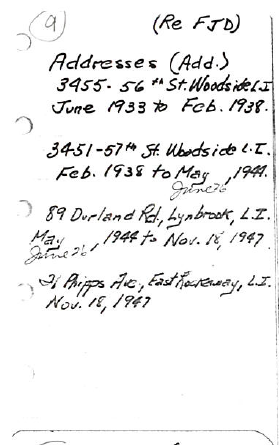 9
(Re FJD)
Addresses (Add.)
3455-56th St. Woodside L.I.
June 1933 to Feb. 1938.
3451-57th St. Woodside L.I.
Feb. 1938 to May , 1944.
June 26
89 Durland Rd., Lynbrook, L.I.
May , 1944 to Nov. 18, 1947.
June 26
21 Phipps Ave., East Rockaway, L.I.
Nov. 18, 1947